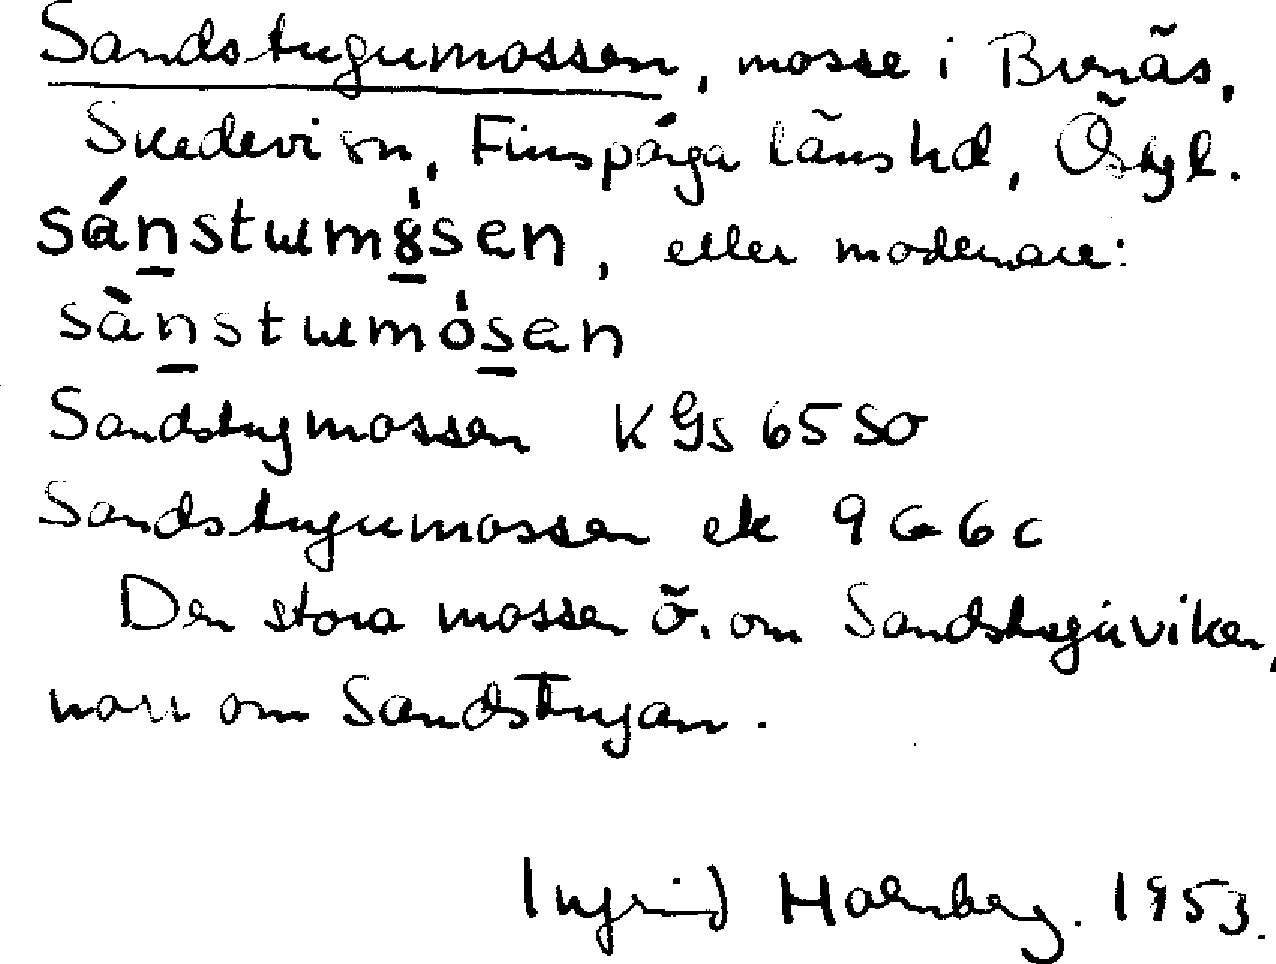 Sandstugumossen, mosse i Brenäs,
Skedevi sn, Finspånga länshd, Östgl.
sánstumòsen, eller modernare:
sànstumósen
Sandstugmossen KGs 65 SO
Sandstugumossen ek 9 G 6 c
Den stora mossen ö. om Sandstuguviken,
norr om Sandstugan.
Ingrid Holmberg. 1953.